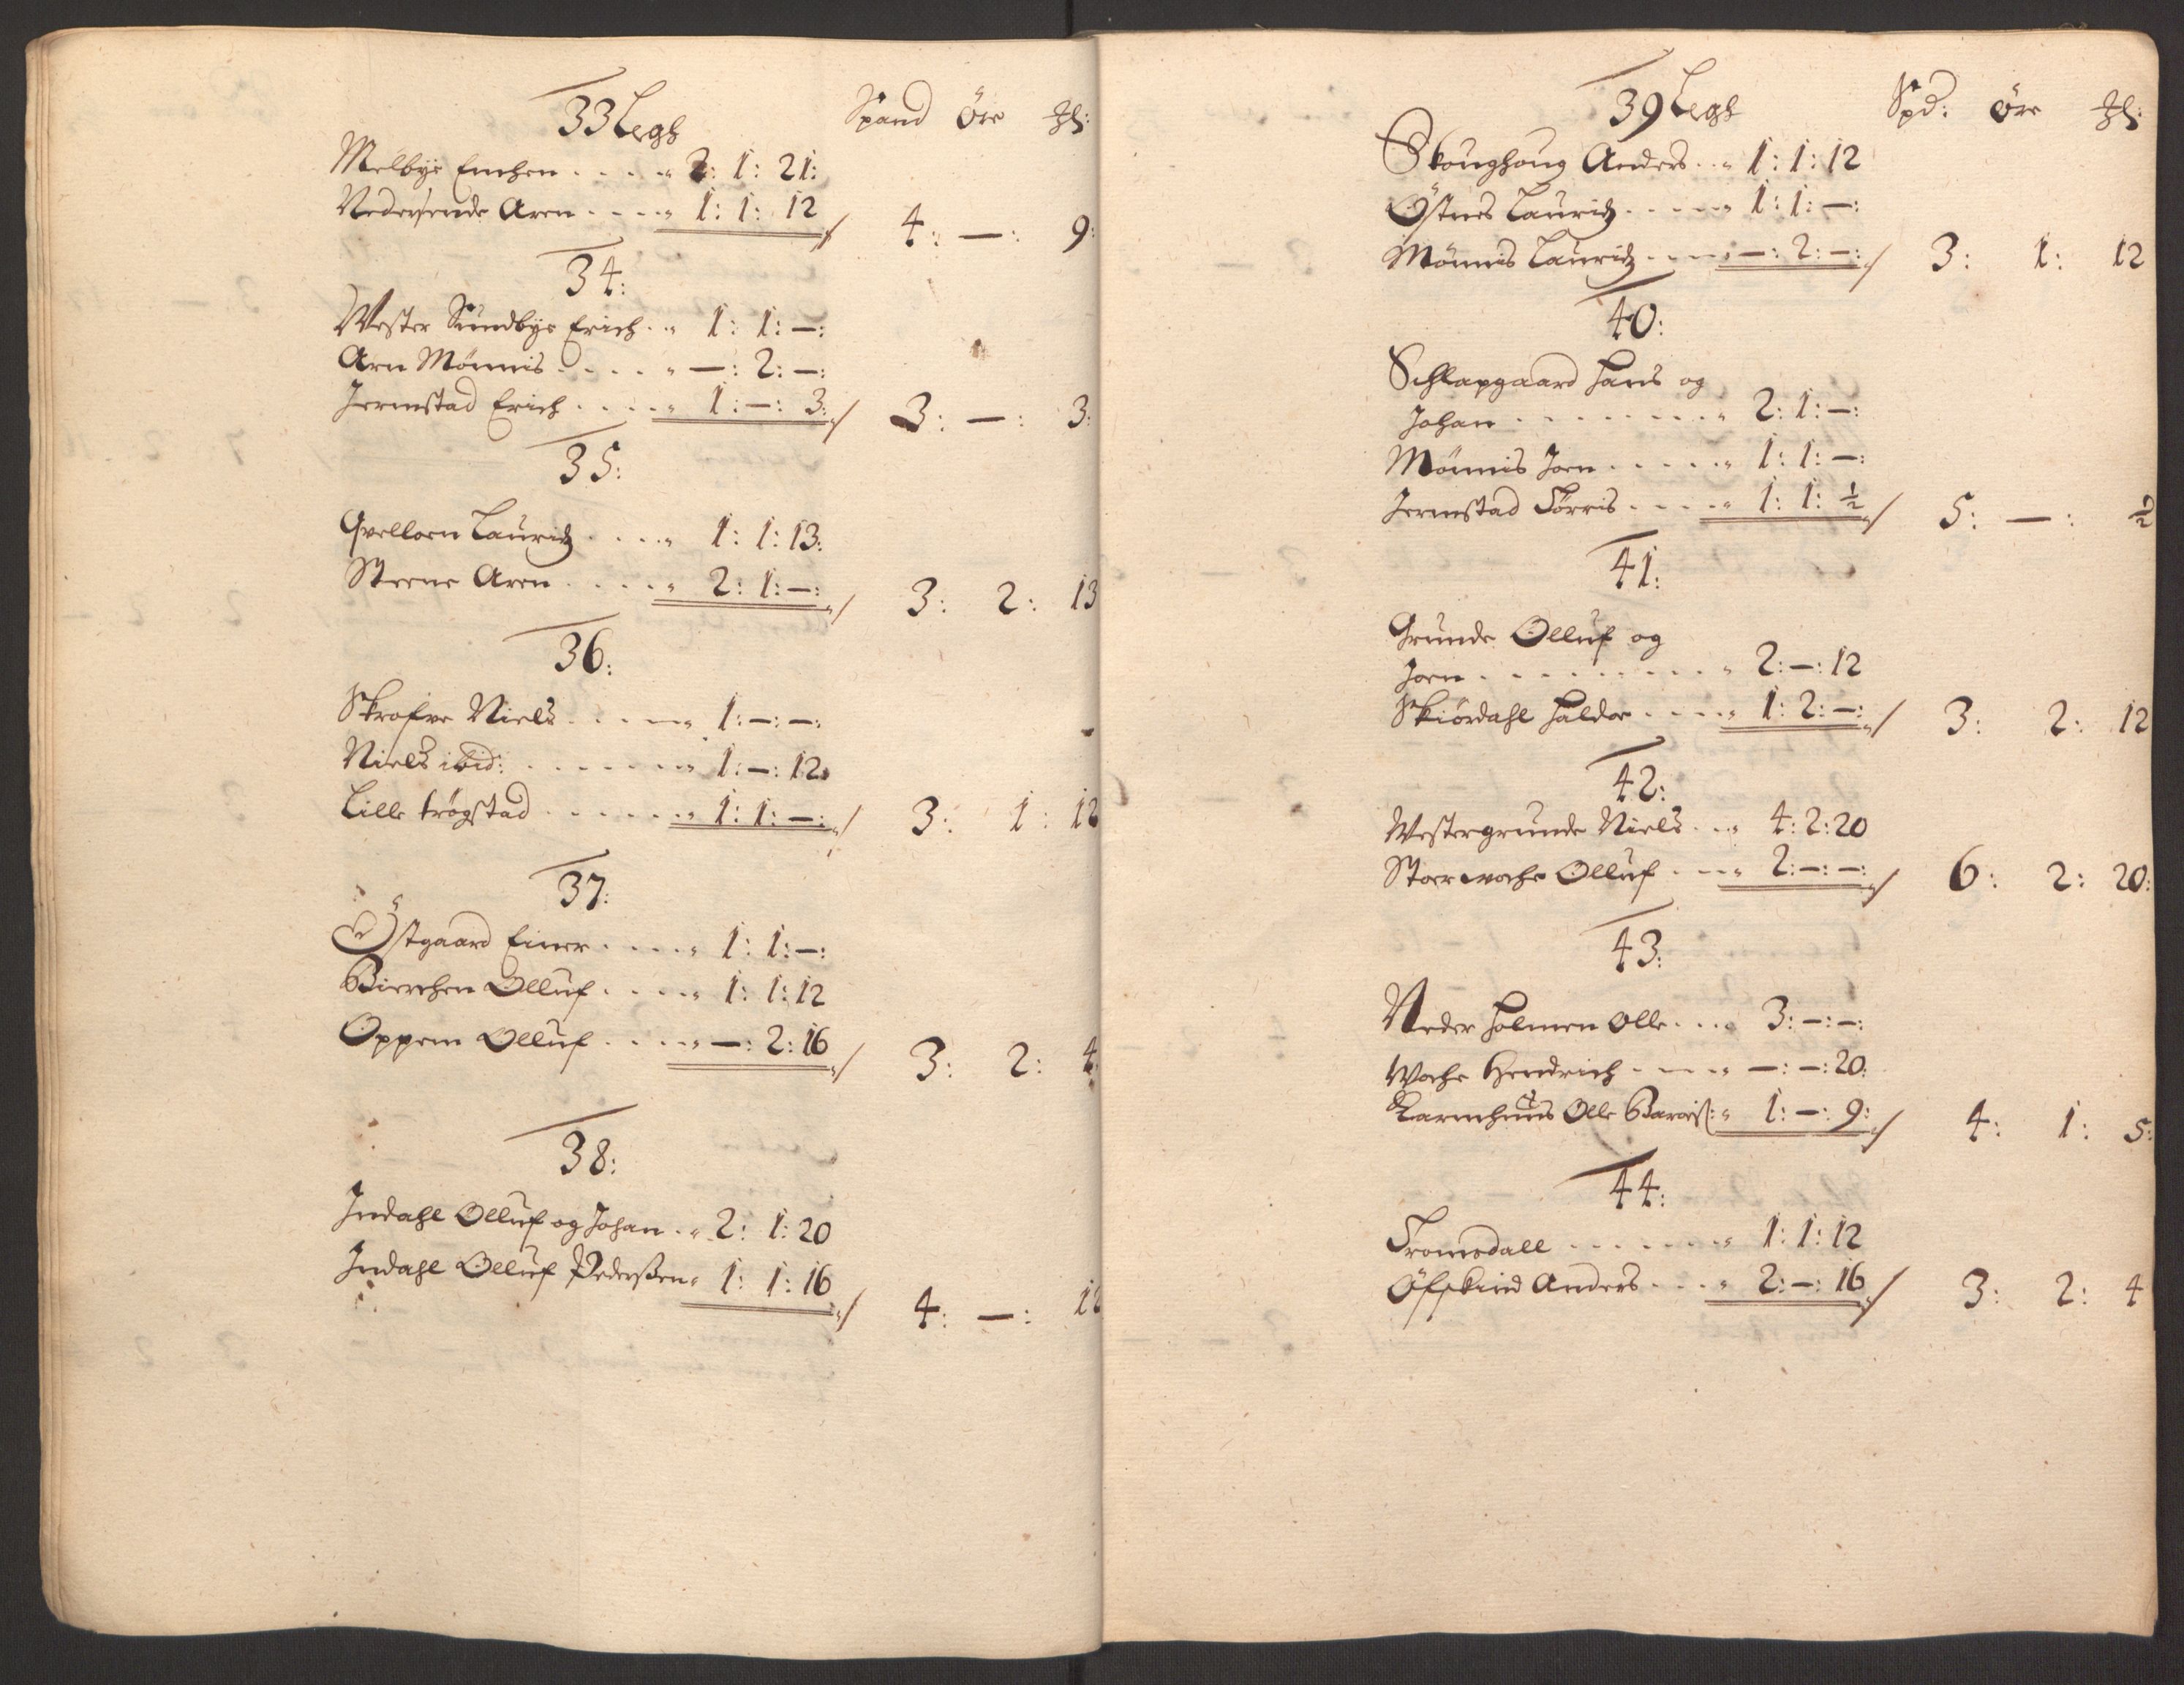 33 Legh Spand Öre
Melbye Enchen . . . . 2: 1: 21:
Nedersende Aren . . . . 1: 1: 12 4: —: 9:
34:
Wester Sundbye Erich . . 1: 1: —:
Arn Mönnis . . . . —: 2: —:
Jermstad Erich . . . . 1: —: 3: 3: —: 3:
35:
Lauridz . . . . 1: 1: 13:
Steene Aren . . . . 2: 1: —: 3: 2: 13
36:
Skrofve Niels . . . . 1: —: —:
Niels ibid: . . . . . . 1: —: 12:
Lille trögstad . . . . . . 1: 1: —: 3: 1: 12
37:
Östgaard Einer . . . . 1: 1: —:
Bierchen Olluf . . . . 1: 1: 12
Oppem Olluf . . . . —: 2: 16 3: 2: 4:
38:
Indahl Olluf og Johan . . 2: 1: 20
Indahl Olluf Pederßen 1: 1: 16 4: —: 12
39 Legh Spd: öre
Skoughoug Anders . . 1: 1: 12
Östnes Lauridz . . . . 1: 1: —:
Mönnis Lauridz . . . . —: 2: —: 3: 1: 12
40:
Schlapgaard Hans og
Johan . . . . . . . . 2: 1: —:
Mönnis Joen . . . . . 1: 1: —:
Jermstad Törris . . . . 1: 1: ½ 5: —: ½
41:
Grunde Olluf og
Joen . . . . . . . . . 2: —: 12
Skiördahl Haldor . . . . 1: 2: —: 3: 2: 12
42:
Westergrunde Niels . . 4: 2: 20
Stoer wohe Olluf . . . 2: —: —: 6: 2: 20:
43:
Neder Holmen Olle . . . 3: —: —:
Wohe Hendrich . . . . —: —: 20:
Karmhuus Olle 1: —: 9: 4: 1: 5:
44:
Tromsdall . . . . . . 1: 1: 12
Öfskind Anders . . . . 2: —: 16 3: 2: 4